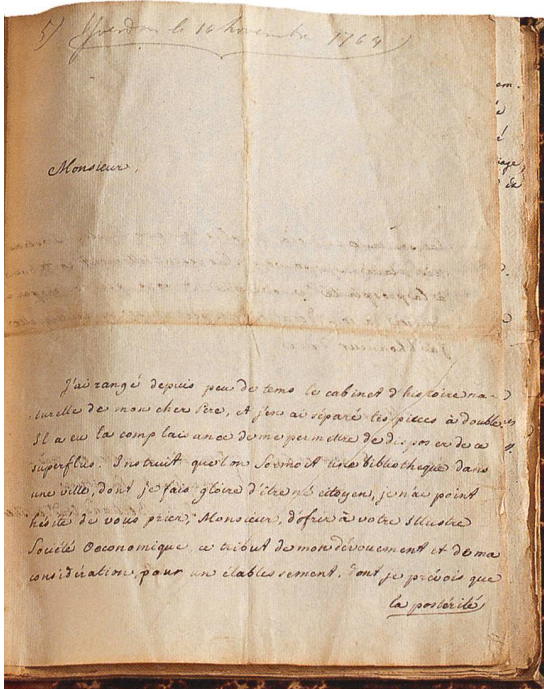 5) Yverdon le 16 novembre 1764
Monsieur,
J'ai rangé depuis peu de tems le cabinet d'histoire na-
turelle de mon cher Père, et j'en ai séparé les pièces à double,
Il a eu la complaisance de me permettre de disposer de ce
superflus. Instruit que l'on formoit une bibliotheque dans
une ville, dont je fais gloire d'être né citoyen, je n'ai point
hésité de vous prier, Monsieur, d'ofrir à votre Illustre
Société Oeconomique, ce tribut de mon dévouement et de ma
considération, pour un établissement, dont je prévois que
la postérité